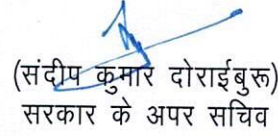 (संदीप कुमार दोराईबुरू)
सरकार के अपर सचिव